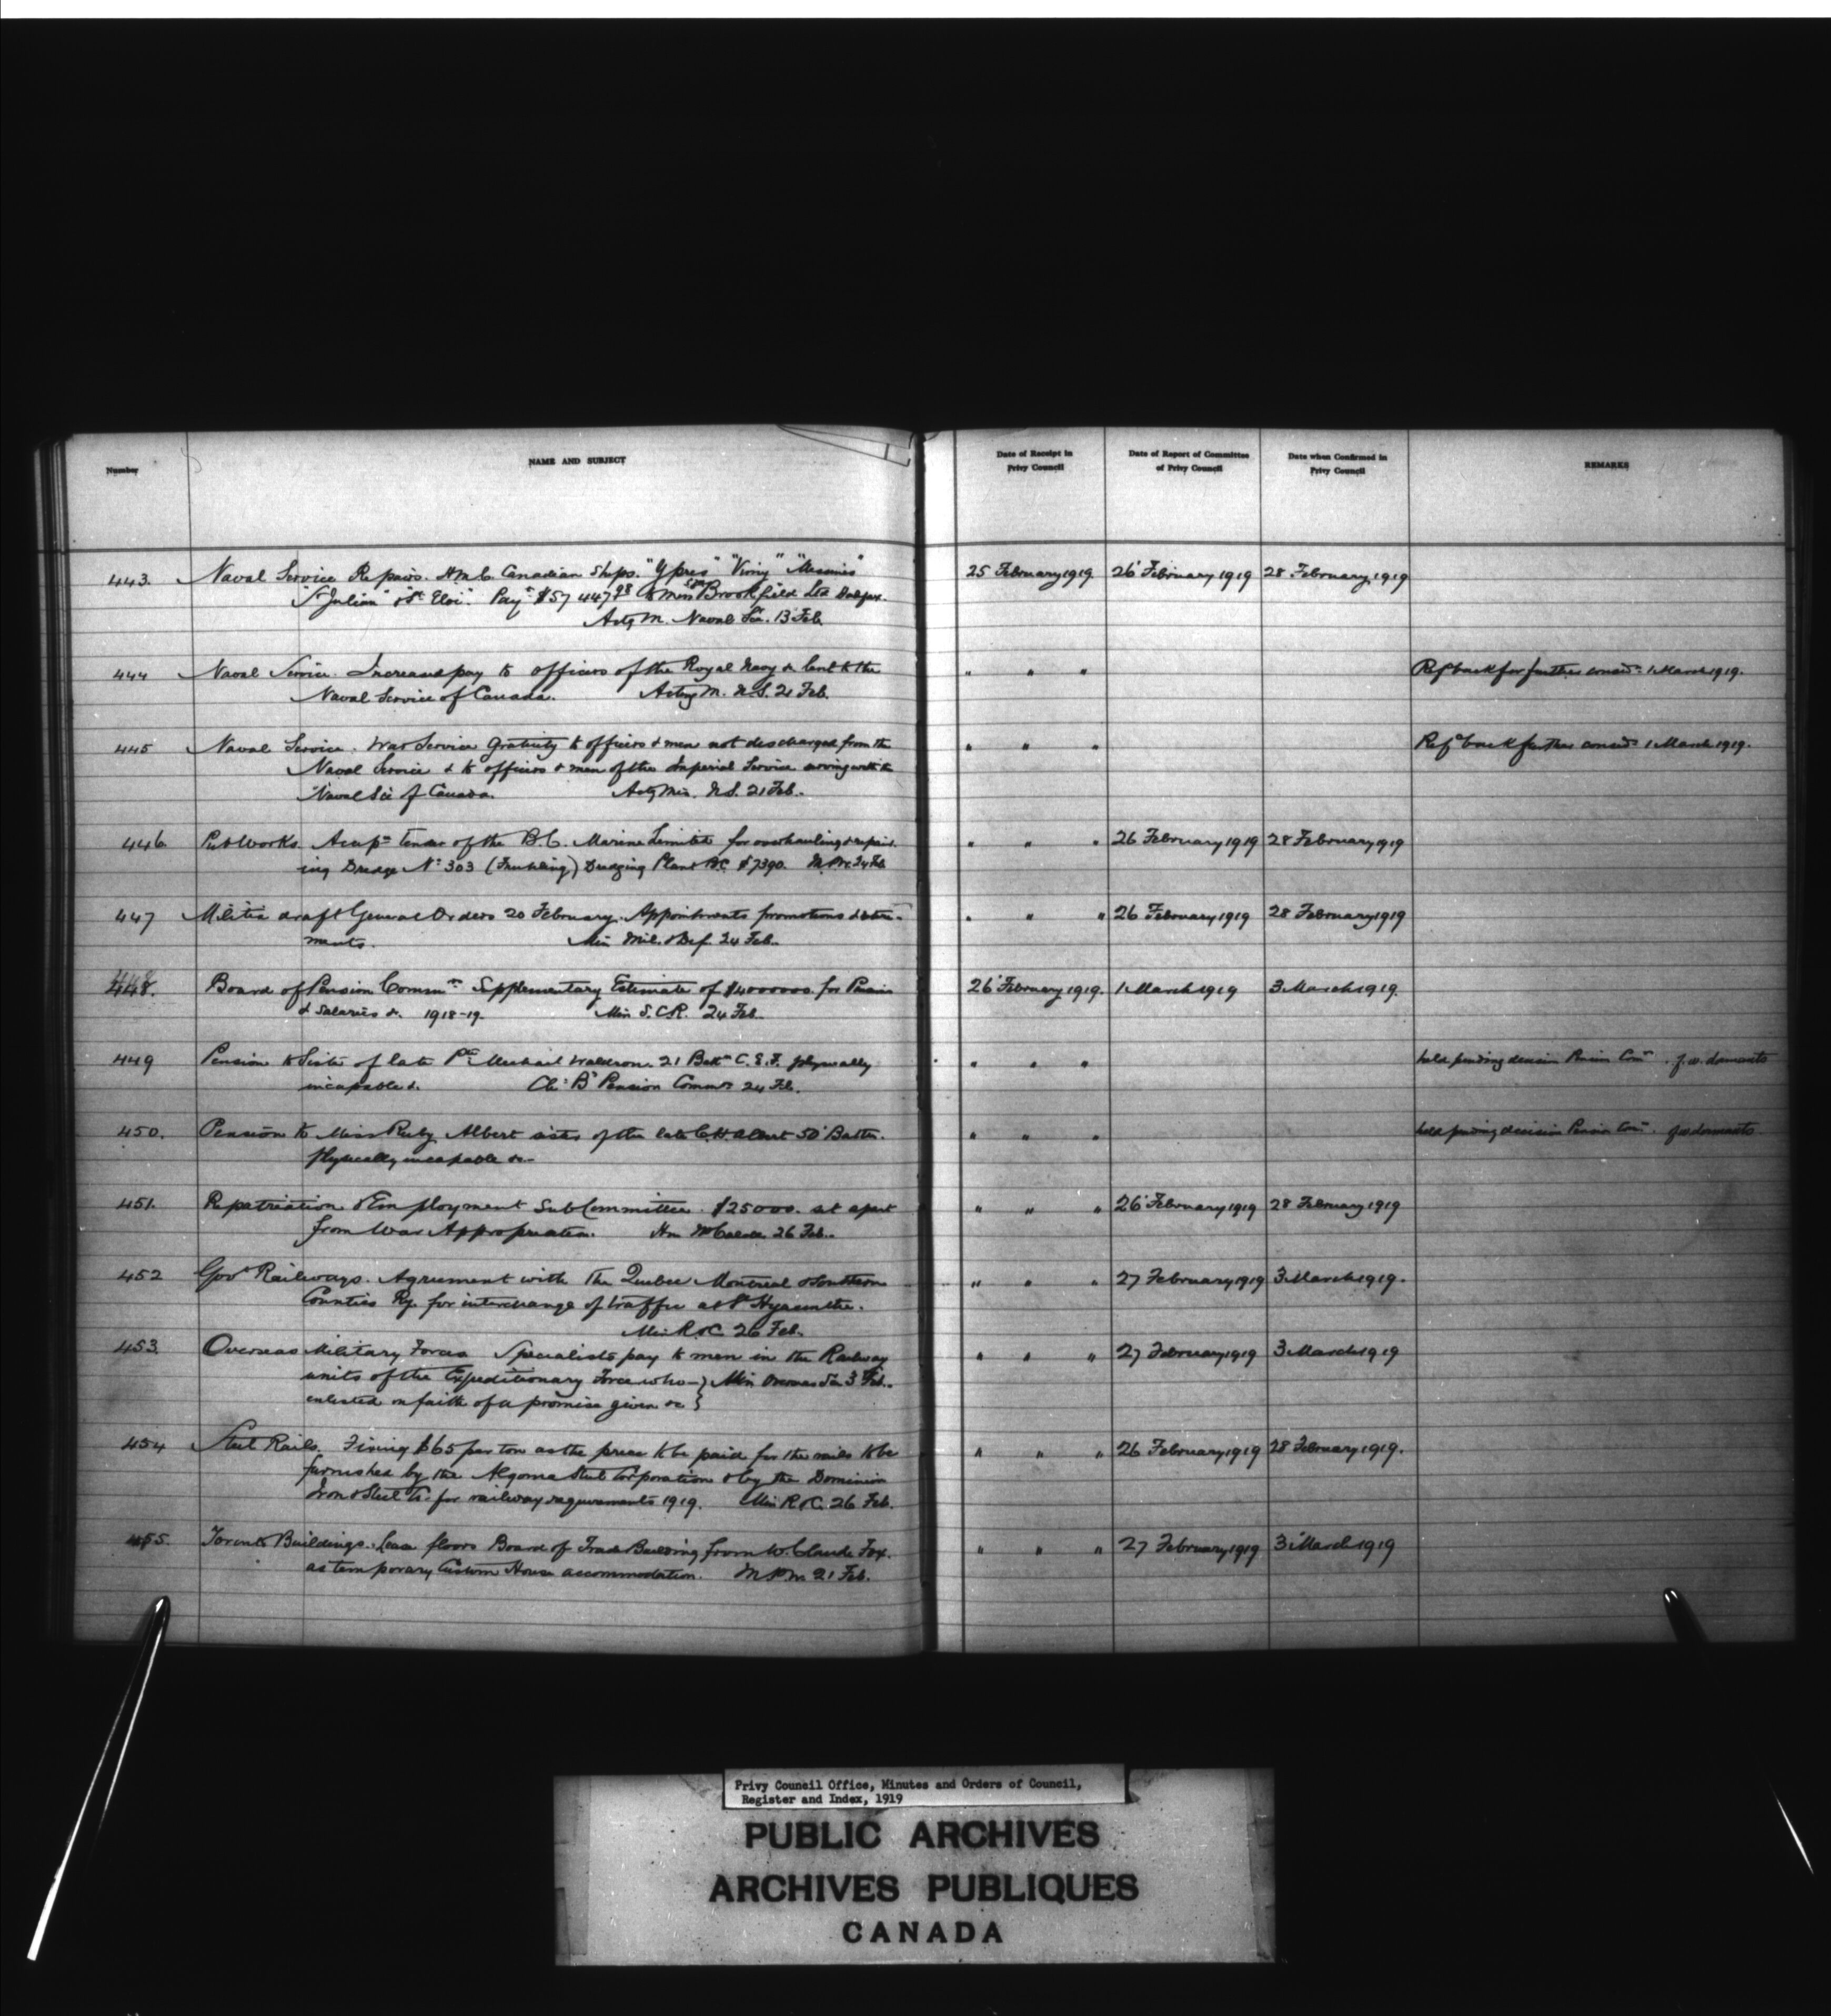 Number
NAME AND SUBJECT
Date of Receipt in
Privy Council
Date of Report of Committee
of Privy Council
Date when Confirmed in
Privy Council
REMARKS
443. Naval Service Repairs. H.M.C. Canadian Ships. "Ypres" "Vimy" "Messines" 25 February 1919 26 February 1919 28 February 1919
"St Julian" & "St Eloi". Payt $57 447.98 to Brookfield Ltd Halifax.
Actg M. Naval Ser. 13 Feb.
444 Naval Service. Increased pay to officers of the Royal Navy &c lent to the " " " Refd back for further consdn 1 March 1919.
Naval Service of Canada. Acting M. N.S. 21 Feb.
445 Naval Service. War Service Gratuity to officers & men not discharged from the " " " Refd back further consdn 1 March 1919.
Naval Service & to officers & men of the Imperial Service serving with the
Naval Sce of Canada. Actg Min. N.S. 21 Feb.
446. Pub Works. Accepce tender of the B.C. Marine Limited for overhauling & repair- " " " 26 February 1919 28 February 1919
ing Dredge No 303 (Fruhling) Dredging Plant B.C. $7390. M.P.W. 24 Feb
447 Militia draft General Orders 20 February. Appointments promotions & retire- " " " 26 February 1919 28 February 1919
ments. Min Mil. & Def. 24 Feb.
448. Board of Pension Commrs Supplementary Estimate of $4000000. for Pensions 26 February 1919. 1 March 1919 3 March 1919.
& Salaries &c. 1918-19. Min S.C.R. 24 Feb.
449 Pension to Sister of late Pte Michael Waldron. 21 Battn C.E.F. physically " " " held pending decision Pension Comn.
incapable &c. Chn Bd Pension Commrs 24 Feb.
450. Pension to Miss Ruby Albert sister of the late C.H. Albert 50 Battn. " " " held pending decision Pension Comn.
physically incapable &c.
451. Repatriation & Employment Sub Committee. $25000. set apart " " " 26 February 1919 28 February 1919
from War Appropriation. Hn Mr Calder. 26 Feb.
452 Govt Railways. Agreement with The Quebec Montreal & Southern " " " 27 February 1919 3 March 1919.
Counties Ry. for interchange of traffic at St Hyacinthe.
Min R. & C. 26 Feb.
453. Overseas Military Forces Specialists pay to men in the Railway " " " 27 February 1919 3 March 1919
units of the Expeditionary Force who } Min Overseas 3 Feb.
enlisted on faith of a promise given &c }
454 Steel Rails. Fixing $65 per ton as the price to be paid for the rails to be " " " 26 February 1919 28 February 1919.
furnished by the Algoma Steel Corporation & by the Dominion
Iron & Steel Co. for railway requirements 1919. Min R. & C. 26 Feb.
455. Toronto Buildings. Lease floors Board of Trade Building from W. Claude Fox. " " " 27 February 1919 3 March 1919
as temporary Custom House accommodation. 21 Feb.
Privy Council Office, Minutes and Orders of Council,
Register and Index, 1919
PUBLIC ARCHIVES
ARCHIVES PUBLIQUES
CANADA